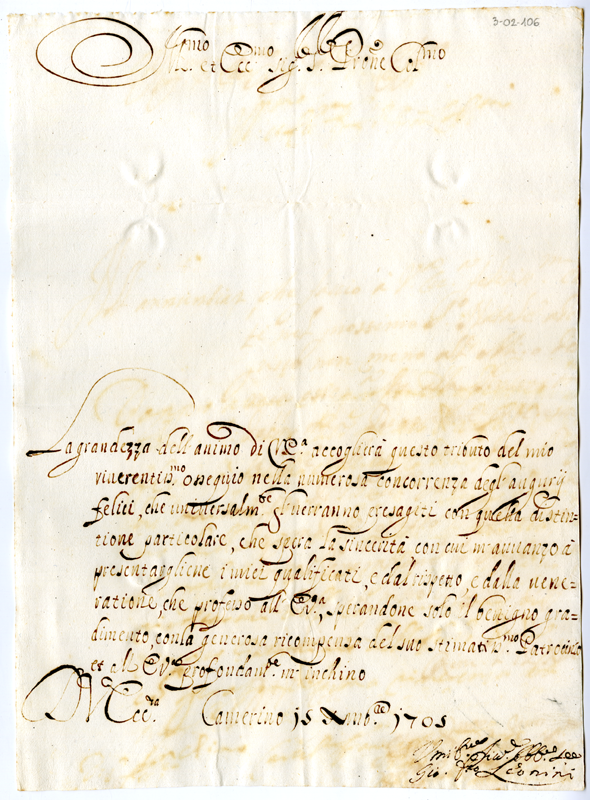 3-02-106
Ill.mo et Ecc.mo Sig.r S. Prone Col.mo
La grandezza dell'animo di V.E.a accoglierà questo tributo del mio
riverentiss.mo ossequio nella numerosa concorrenza degl'augurij
felici, che universalm.te gl'verranno presagiti con quella distin=
tione particolare, che spera la sincerità con cui m'avvanzo à
presentargliene i miei qualificati, e dal rispetto e dalla vene=
ratione, che professo all'E.V.ra, sperandone solo il benigno gra=
dimento, con la generosa ricompensa del suo stimatiss.mo Patrocinio
et all'E.V.ra profondam.te m'inchino
D V Ecc.za Camerino 15 Xmb.re 1705
Umil.mo
Gio. Leonini